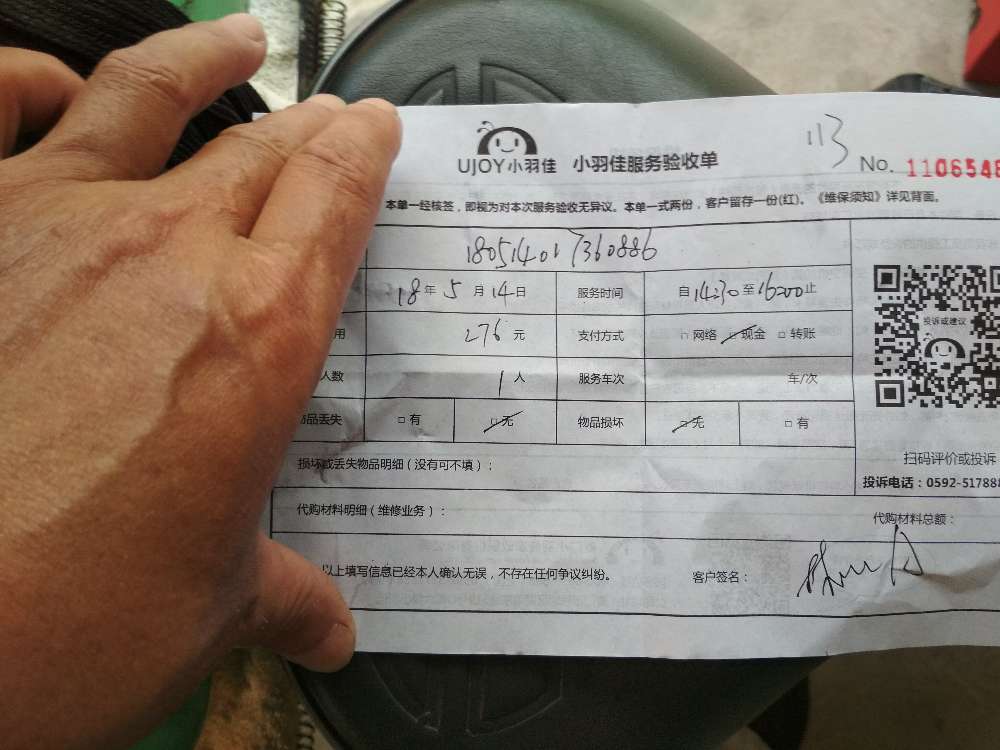 113
UJOY小羽佳 小羽佳服务验收单 No. 1106548
本单一经核签，即视为对本次服务验收无异议。本单一式两份，客户留存一份(红)。《维保须知》详见背面。
180514017360886
18年5月14日 服务时间 自14:30至16:00止
用 276元 支付方式 □ 网络 □ 现金 □ 转账
投诉或建议
人数 1人 服务车次 车/次
物品丢失 □ 有 □ 无 物品损坏 □ 无 □ 有
损坏或丢失物品明细（没有可不填）：
扫码评价或投诉
投诉电话：0592-517888
代购材料明细（维修业务）： 代购材料总额：
以上填写信息已经本人确认无误，不存在任何争议纠纷。 客户签名：